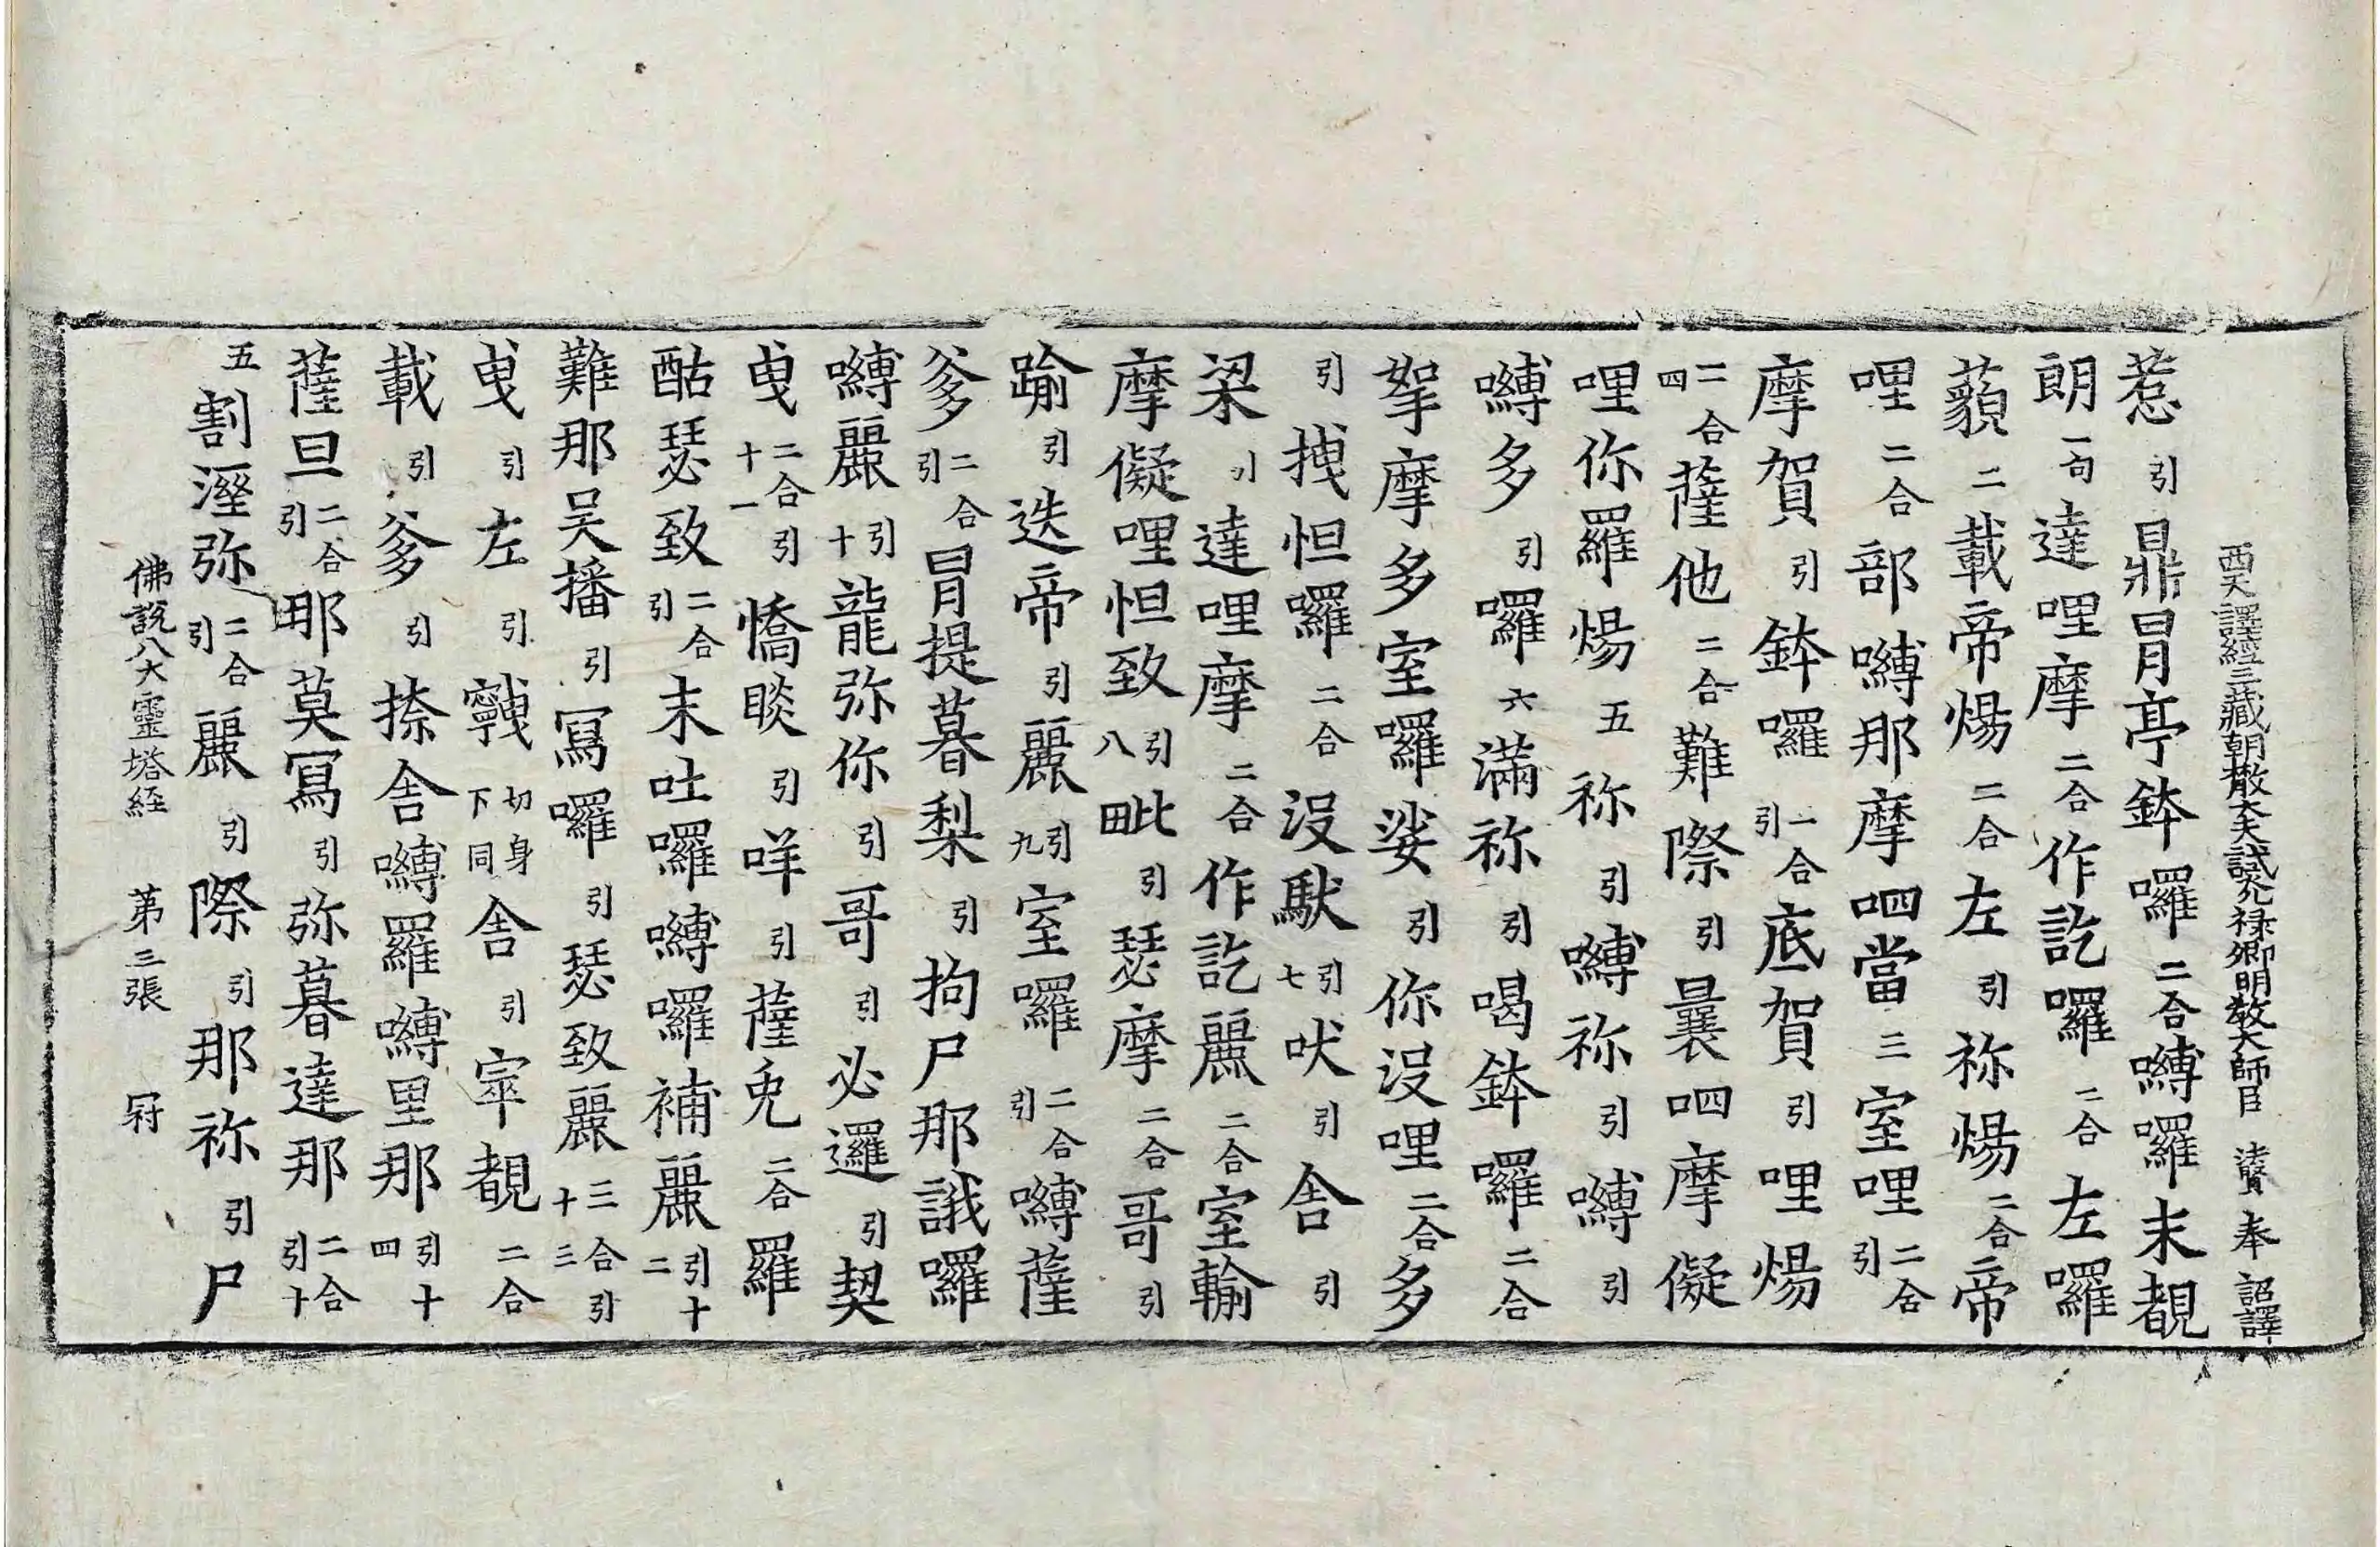 西天譯經三藏朝散大夫試光祿卿明敎大師臣 法賢 奉 詔譯
惹引鼎冐亭鉢囉二合嚩囉末覩
朗一句達哩摩二合作訖囉二合左囉
藐二載帝煬二合左引祢煬二合帝
哩二合部嚩那摩呬當三室哩二合引
摩賀引鉢囉二合引底賀引哩煬
二合四薩他二合難際引曩呬摩儗
哩你羅煬五祢引嚩祢引嚩引
嚩多引囉六滿祢引喝鉢囉二合
拏摩多室囉娑引你沒哩二合多
引拽怛囉二合沒馱引七吠引舍引
梁引達哩摩二合作訖麗二合室輸
摩儗哩怛致引八毗引瑟摩二合哥引
踰引迭帝引麗引九室囉二合引嚩薩
爹二合引冐提暮梨引拘尸那誐囉
嚩麗引十龍弥你引哥引必邏引契
曳二合十一引憍睒引咩引薩兎二合羅
酤瑟致二合引末吐囉嚩囉補麗引十二
難那吴播引冩囉引瑟致麗三合引十三
曳引左引𪘨切身下同舍引𡨧覩二合
載引爹引捺舍嚩羅嚩里那引十四
薩旦二合引那莫冩引弥暮達那二合引十
五割溼弥二合引麗引際引那祢引尸
佛説八大靈塔經 苐三張 冠